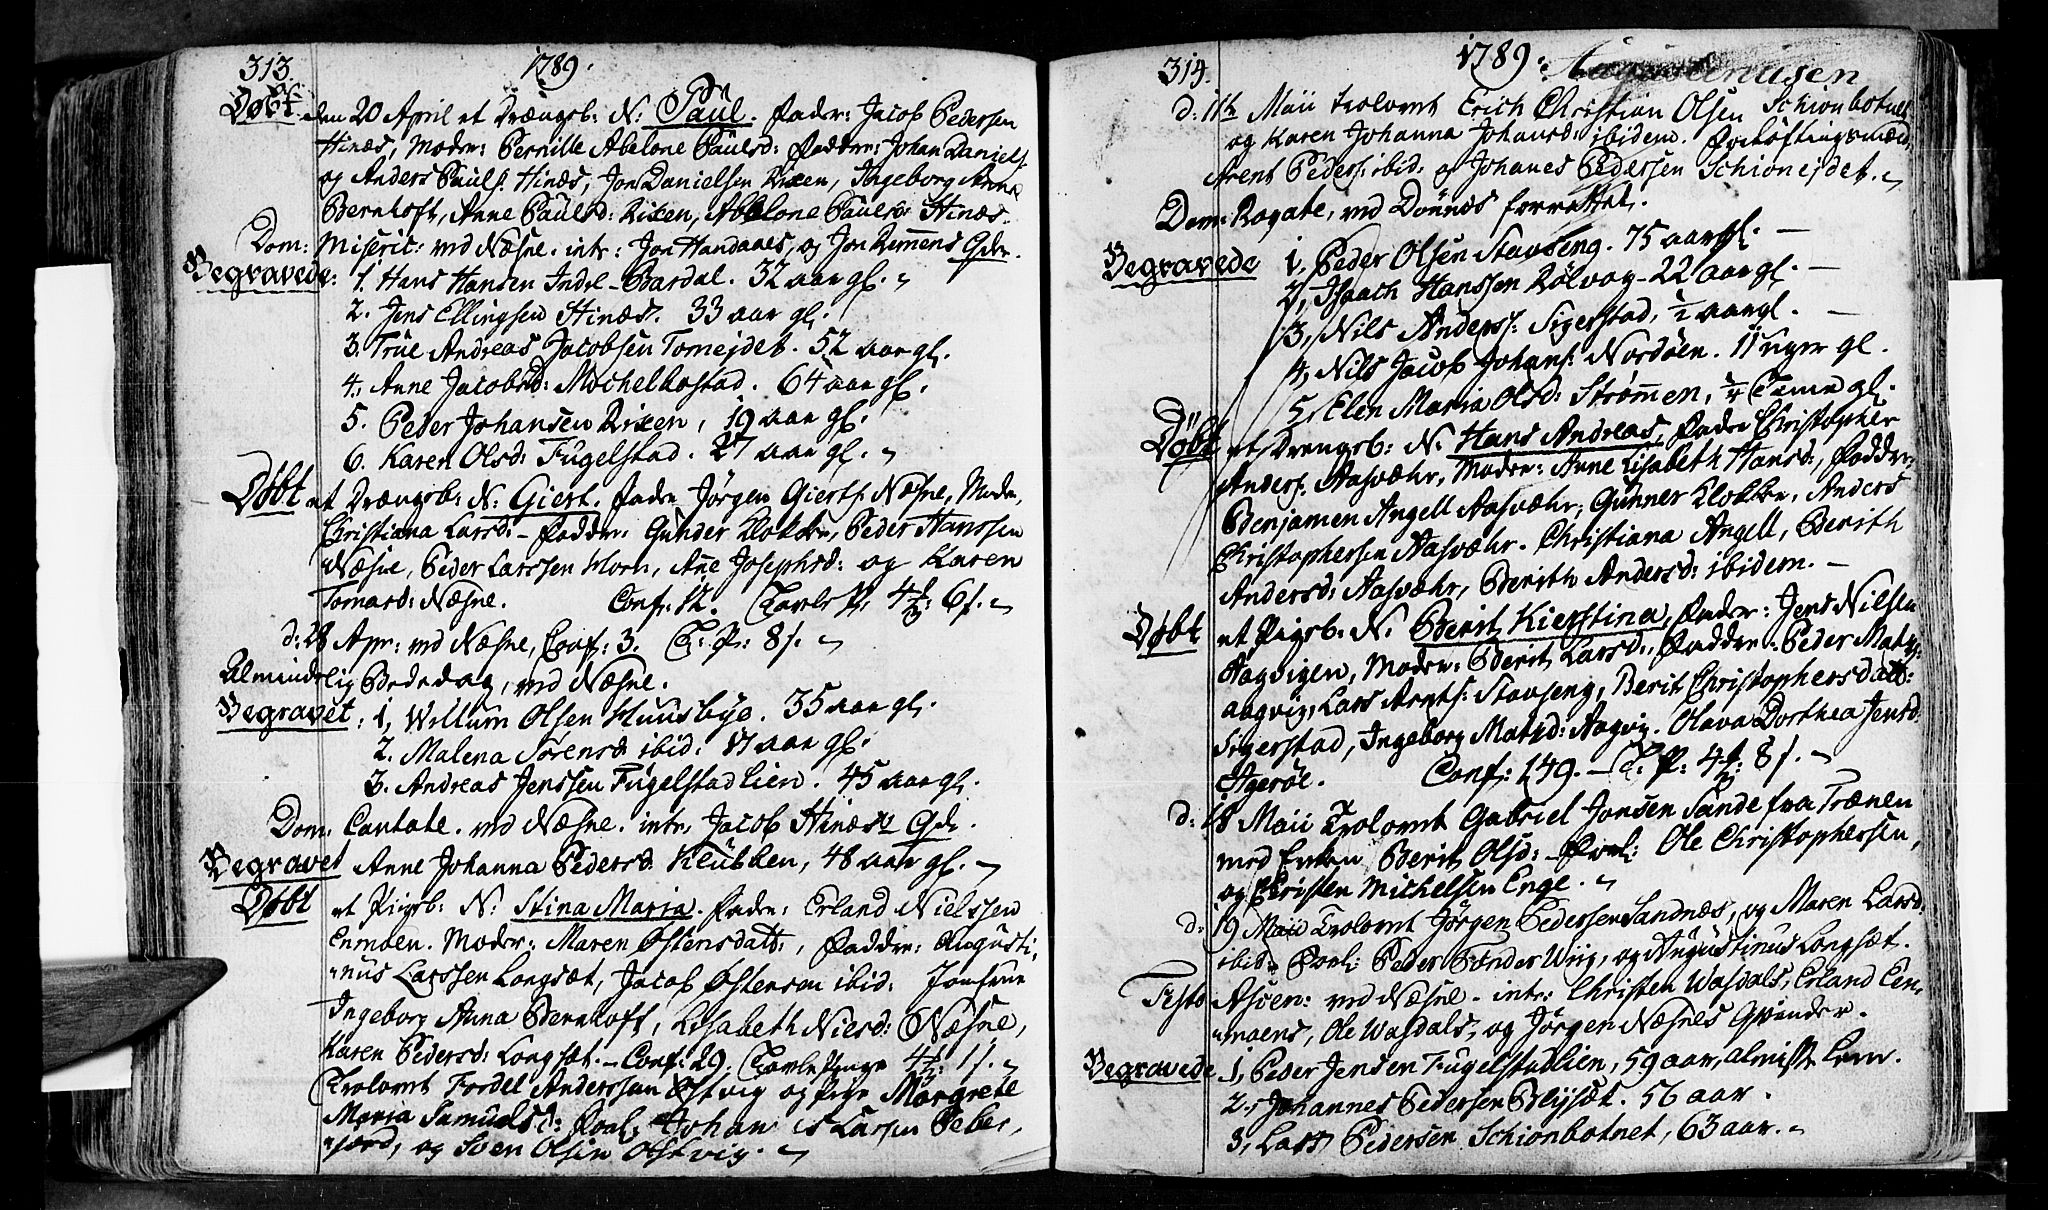 313.
1789.
Døbt den 20 April et Drængeb: N: Paul. Fader: Jacob Pedersen
Hinæs, Moder: Pernille Abelone Paulsd: Faddre: Johan Daniels:
og Anders Pauls: Hinæs, Jon Danielsen Rixen, Ingeborg Anna
Bernhoft, Anne Paulsd: Rixen, Abelone Paulsd: Hinæs.
Dom: Miseric: ved Næsne. intr: Jon Handanes, og Jon Remmens Qdr.
Begravede: 1. Hans Hansen Indre-Bardal. 32 aar gl.
2. Jens Ellingsen Hinæs. 33 aar gl.
3. True Andreas Jacobsen Tomejdet. 52 aar gl.
4. Anne Jacobsd: Mochelbostad. 64 aar gl.
5. Peder Johansen Rixen, 19 aar gl.
6. Karen Olsd: Fugelstad. 27 aar gl.
Døbt et Drængeb: N: Giert. Fader Jørgen Gierts: Næsne, Moder,
Christiana Larsd: - Faddre: Gunder Klokker, Peder Hanssen
Næsne, Peder Larssen Horn, Ane Josephsd: og Karen
Tomasd: Næsne. Conf: 12. Tavle P: 4 ß: 6 s.
d: 28 Apr: ved Næsne, Conf: 3. T: P: 8 s.
Almindelig Bededag, ved Næsne.
Begravet: 1, Willum Olsen Huusbye. 35 aar gl.
2. Malena Sørensd: ibid: 17 aar gl.
3. Andreas Jenssen Fugelstadlien. 45 aar gl.
Dom: Cantate. ved Næsne. intr, Jacob Hinæs Qde.
Begravet Anne Johanna Pedersd: Klubben, 48 aar gl.
Døbt et Pigeb: N: Stina Maria. Fader: Erland Nielssen
Enmoen. Moder: Maren Østensdatt:, Faddre: Augusti-
nus Larssen Longsæt, Jacob Østensen ibid: Jomfrue
Ingeborg Anna Bernhoft, Lisabeth Nielsd: Næsne,
Karen Pedersd: Longsæt. - Conf: 29. Tavle Penge 4 ß: 1 s.
Trolovet Fordel Anderssen Østvig og Pige Margrete
Maria Samuelsd: Forl: Johannes Larsen Leber,
fiord, og Sven Olsen Østvig.
314.
1789.
d: 11te Maii trolovet Erich Christian Olsen Schionbotnet
og Karen Johanna Johansd: ibidem. Forløftingsmænd,
Arent Peders: ibid: og Johanes Pedersen Schionejdet.
Dom: Rogate, ved Dønnæs forrettet.
Begravede 1, Peder Olsen Stavseng. 75 aar gl.
2, Isaach Hanssen Rølvog - 22 aar gl.
3, Nils Anders: Sigerstad, 1/2 aar gl.
4, Nils Jacob Johans: Nordøen. 11 uger gl.
5, Elen Maria Olsd: Strømmen, 3/4 Time gl.
Døbt et Drengeb: N. Hans Andreas, Fader Christopher
Anders: Aasværhr, Moder: Anne Lisabeth Hansd:, Faddre:
Benjamen Angell Aasværhr, Gunner Klokker, Anders
Christophersen Aasværhr. Christiana Angell, Berith
Andersd: Aasværhr, Berith Andersd: ibidem. -
Døbt et Pigeb: N. Berit Kierstina, Fader: Jens Nilsen
Aagvigen, Moder: Berit Larsd:, Faddre: Peder Mats:
aagvig, Lars Arnts: Stavseng, Berit Christophersdatt:
Sigerstad, Ingeborg Matsd: Aagvig. Olava Dorthea Jensd:
Agerøe. Conf: 149. - T: P: 4 ß: 8 s.
d: 18 Maii Trolovet Gabriel Jonsen Sande fra Trænen
med Enken Berit Olsd: - Forl: Ole Christophersen,
og Christen Michelsen Enge.
d: 19 Maii Trolovet Jørgen Pedersen Sandnæs, og Maren Larsd:
ibid: Forl: Peder Tønder Wiig, og Augustinus Longsæt.
Festo Ascen: ved Næsne. intr: Christen Wasdals, Erland En-
moens, Ole Wasdals, og Jørgen Næsnes Qvinder.
Begravede 1, Peder Jensen Fugelstadlien, 59 aar, almisse Lem.
2, Johannes Pedersen Blyset. 56 aar.
3, Lars Pedersen Schionbotnet, 63 aar.